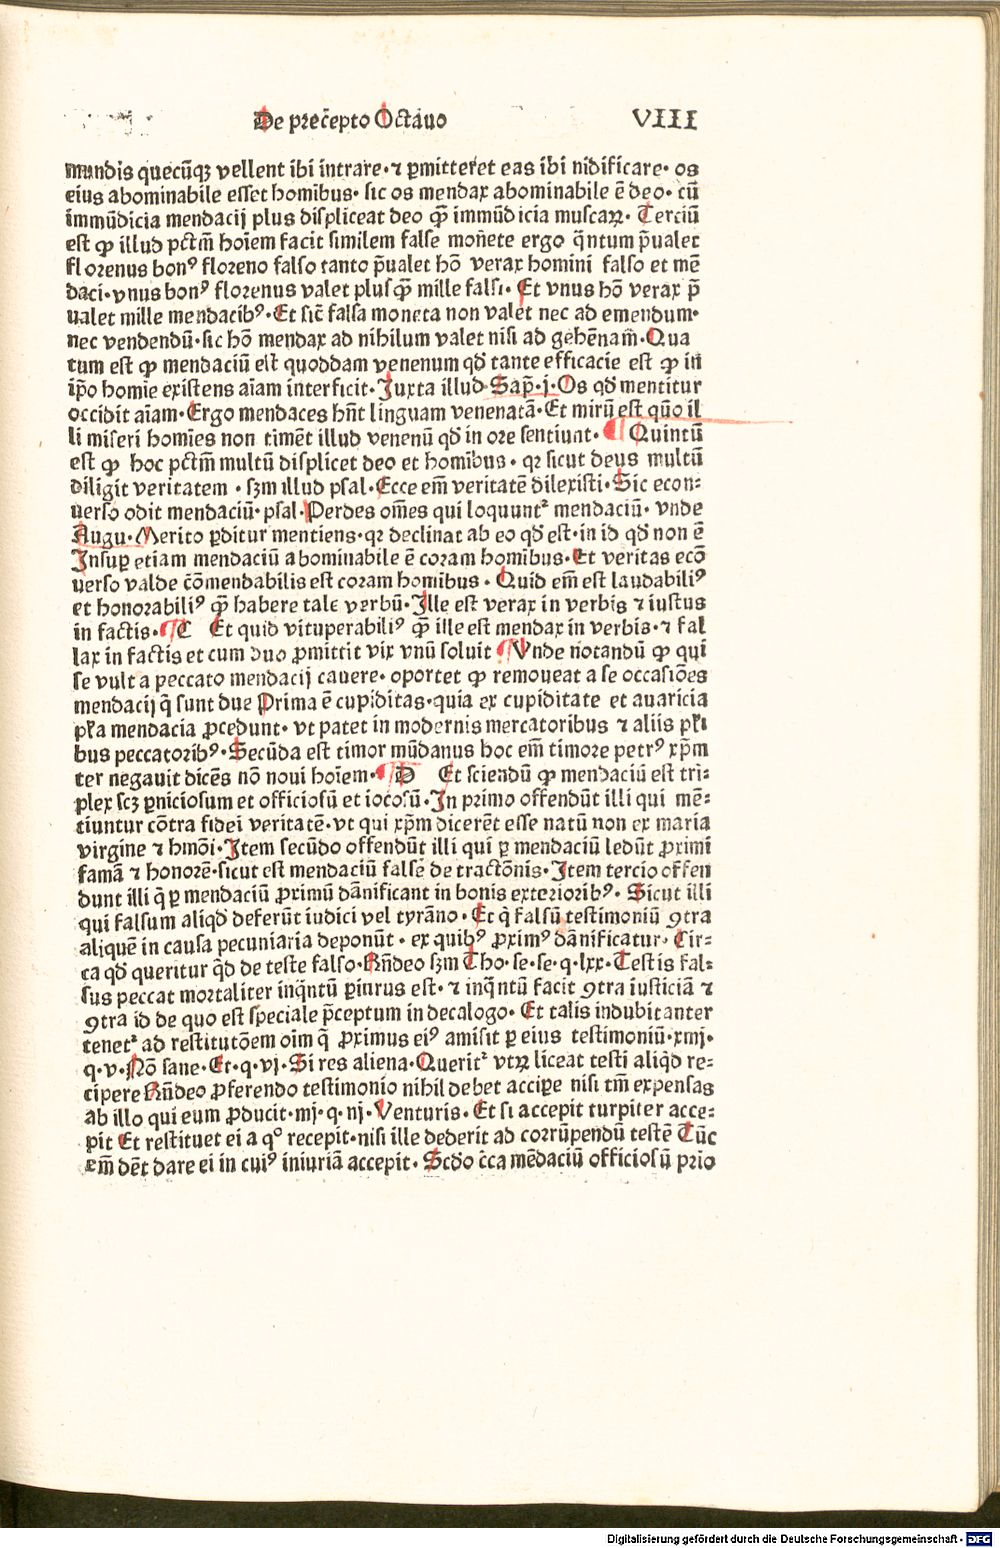 De prec̄epto Octauo VIII
mundis quecūqꝫ vellent ibi intrare· ⁊ ꝑmitteret eas ibi nidificare· os
eius abominabile esset homibus· sic os mendax abominabile ē deo· cū
immūdicia mendacij plus displiceat deo qꝫ̄ immūdicia muscaꝝ· Terciū
est ꝙ illud pctm̄ hoīem facit similem false monete ergo q̄ntum p̄ualet
florenus bonꝰ floreno falso tanto p̄ualet hō verax homini falso et mē
daci· vnus bonꝰ florenus valet plusqꝫ̄ mille falsi· Et vnus hō verax p̄
ualet mille mendacibꝰ· Et sic̄ falsa moneta non valet nec ad emendum·
nec vendendū· sic hō mendax ad nihilum valet nisi ad gehēnam̄· Qua
tum est ꝙ mendaciū est quoddam venenum qd̄ tante efficacie est ꝙ in
ip̄o homīe existens aīam interficit· Juxta illud Sap̄· j· Os qd̄ mentitur
occidit aīam· Ergo mendaces hn̄t linguam venenatā· Et mirū est quō il
li miseri homīes non timēt illud venenū qd̄ in ore sentiunt· ¶ Quintū
est ꝙ hoc pctm̄ multū displicet deo et homībus· qꝛ sicut deus multū
diligit veritatem · sꝫm illud psal· Ecce em̄ veritatē dilexisti· Sic econ-
uerso odit mendaciū· psal· Perdes om̄es qui loquunt᷑ mendaciū· vnde
Augu· Merito ꝑditur mentiens· qꝛ declinat ab eo qd̄ est· in id qd̄ non ē
Insuꝑ etiam mendaciū abominabile ē coram homībus· Et veritas ecō
uerso valde cōmendabilis est coram homibus · Quid em̄ est laudabiliꝰ
et honorabiliꝰ qꝫ̄ habere tale verbū· Ille est verax in verbis ⁊ iustus
in factis· ¶ C Et quid vituperabiliꝰ qꝫ̄ ille est mendax in verbis· ⁊ fal
lax in factis et cum duo ꝓmittit vix vnū soluit ¶ Vnde notandū ꝙ qui
se vult a peccato mendacij cauere· oportet ꝙ remoueat a se occasiōes
mendacij q̄ sunt due Prima ē cupiditas· quia ex cupiditate et auaricia
pꝉa mendacia ꝓcedunt· vt patet in modernis mercatoribus ⁊ aliis pꝉi
bus peccatoribꝰ· Secūda est timor mūdanus hoc em̄ timore petrꝰ xp̄m
ter negauit dicēs nō noui hoīem· ¶ D Et sciendū ꝙ mendaciū est tri-
plex scꝫ ꝑniciosum et officiosū et iocosū· In primo offendūt illi qui mē-
tiuntur cōtra fidei veritatē· vt qui xp̄m dicerēt esse natū non ex maria
virgine ⁊ hmōi· Item secūdo offendūt illi qui ꝑ mendaciū ledūt ꝓximi
famā ⁊ honorē· sicut est mendaciū false de tractōnis· Item tercio offen
dunt illi q̄ ꝑ mendaciū ꝓximū dānificant in bonis exterioribꝰ· Sicut illi
qui falsum aliqd̄ deferūt iudici vel tyrāno· Et q̄ falsū testimoniū ꝯtra
aliquē in causa pecuniaria deponūt · ex quibꝰ ꝓximꝰ dānificatur· Cir-
ca qd̄ queritur q̄d de teste falso· Rn̄deo sꝫm Tho· se· se· q· lxx· Testis fal-
sus peccat mortaliter inq̄ntū ꝑiurus est· ⁊ inq̄ntū facit ꝯtra iusticiā ⁊
ꝯtra id de quo est speciale p̄ceptum in decalogo· Et talis indubitanter
tenet᷑ ad restitutōem oīm q̄ ꝓximus eiꝰ amisit ꝑ eius testimoniū· xiiij·
q· v· Nō sane· Et· q· vj· Si res aliena· Querit᷑ vtꝝ liceat testi aliqd̄ re-
cipere Rn̄deo ꝓferendo testimonio nihil debet acciꝑe nisi tm̄ expensas
ab illo qui eum ꝓducit· iiij· q· iij· Venturis· Et si accepit turpiter acce-
pit Et restituet ei a qº recepit· nisi ille dederit ad corrūpendū testē Tūc
em̄ dēt dare ei in cuiꝰ iniuriā accepit· Scd̄o c̄ca mēdaciū officiosū prio
Digitalisierung gefördert durch die Deutsche Forschungsgemeinschaft - DFG